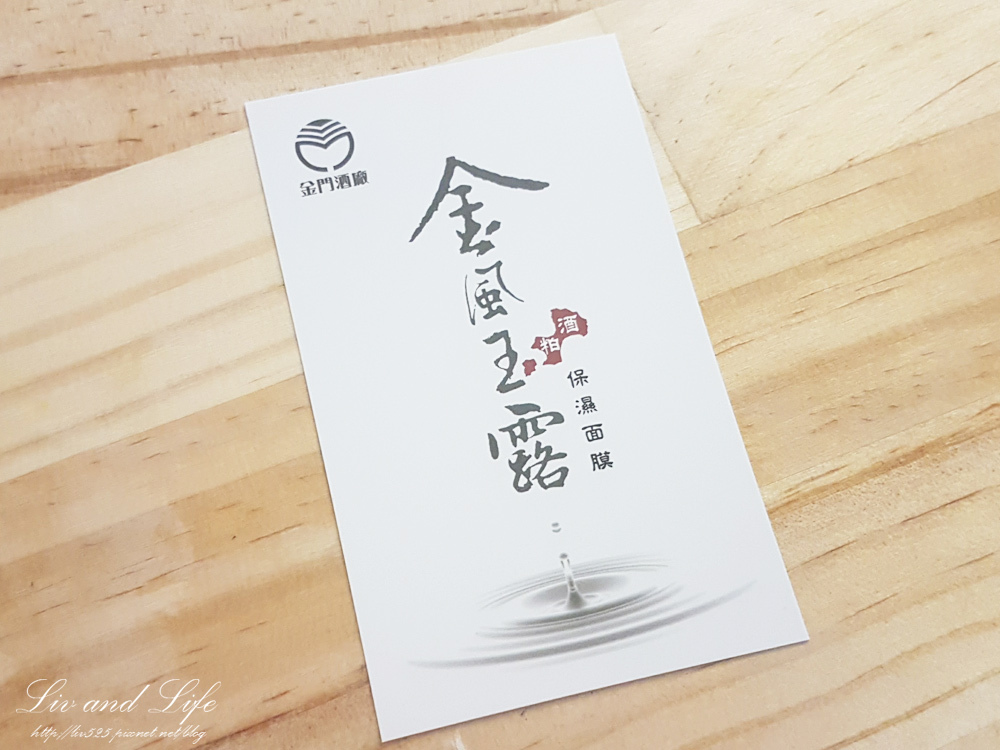 金門酒廠
金風玉露
酒粕
保濕面膜
Liv and Life
http://liv525.pixnet.net/blog